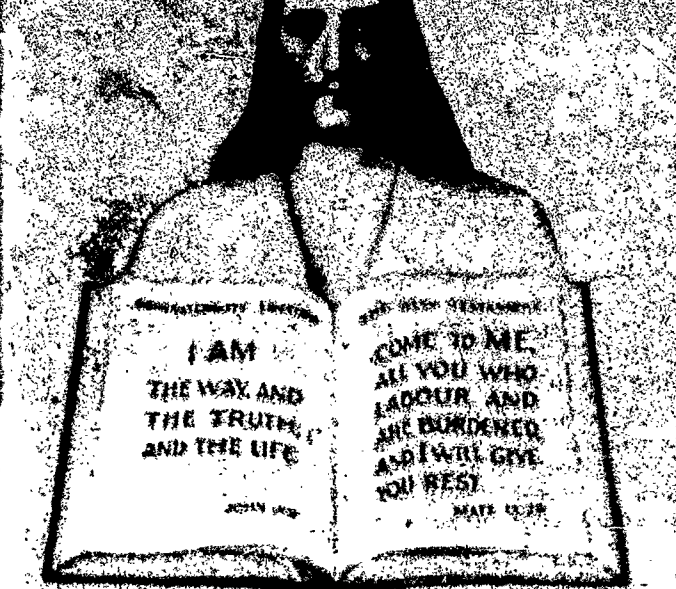 I AM
THE WAY, AND
THE TRUTH,
AND THE LIFE
JOHN
THE NEW TESTAMENT
COME TO ME,
ALL YOU WHO
LABOUR AND
ARE BURDENED
AND I WILL GIVE
YOU REST
MATT